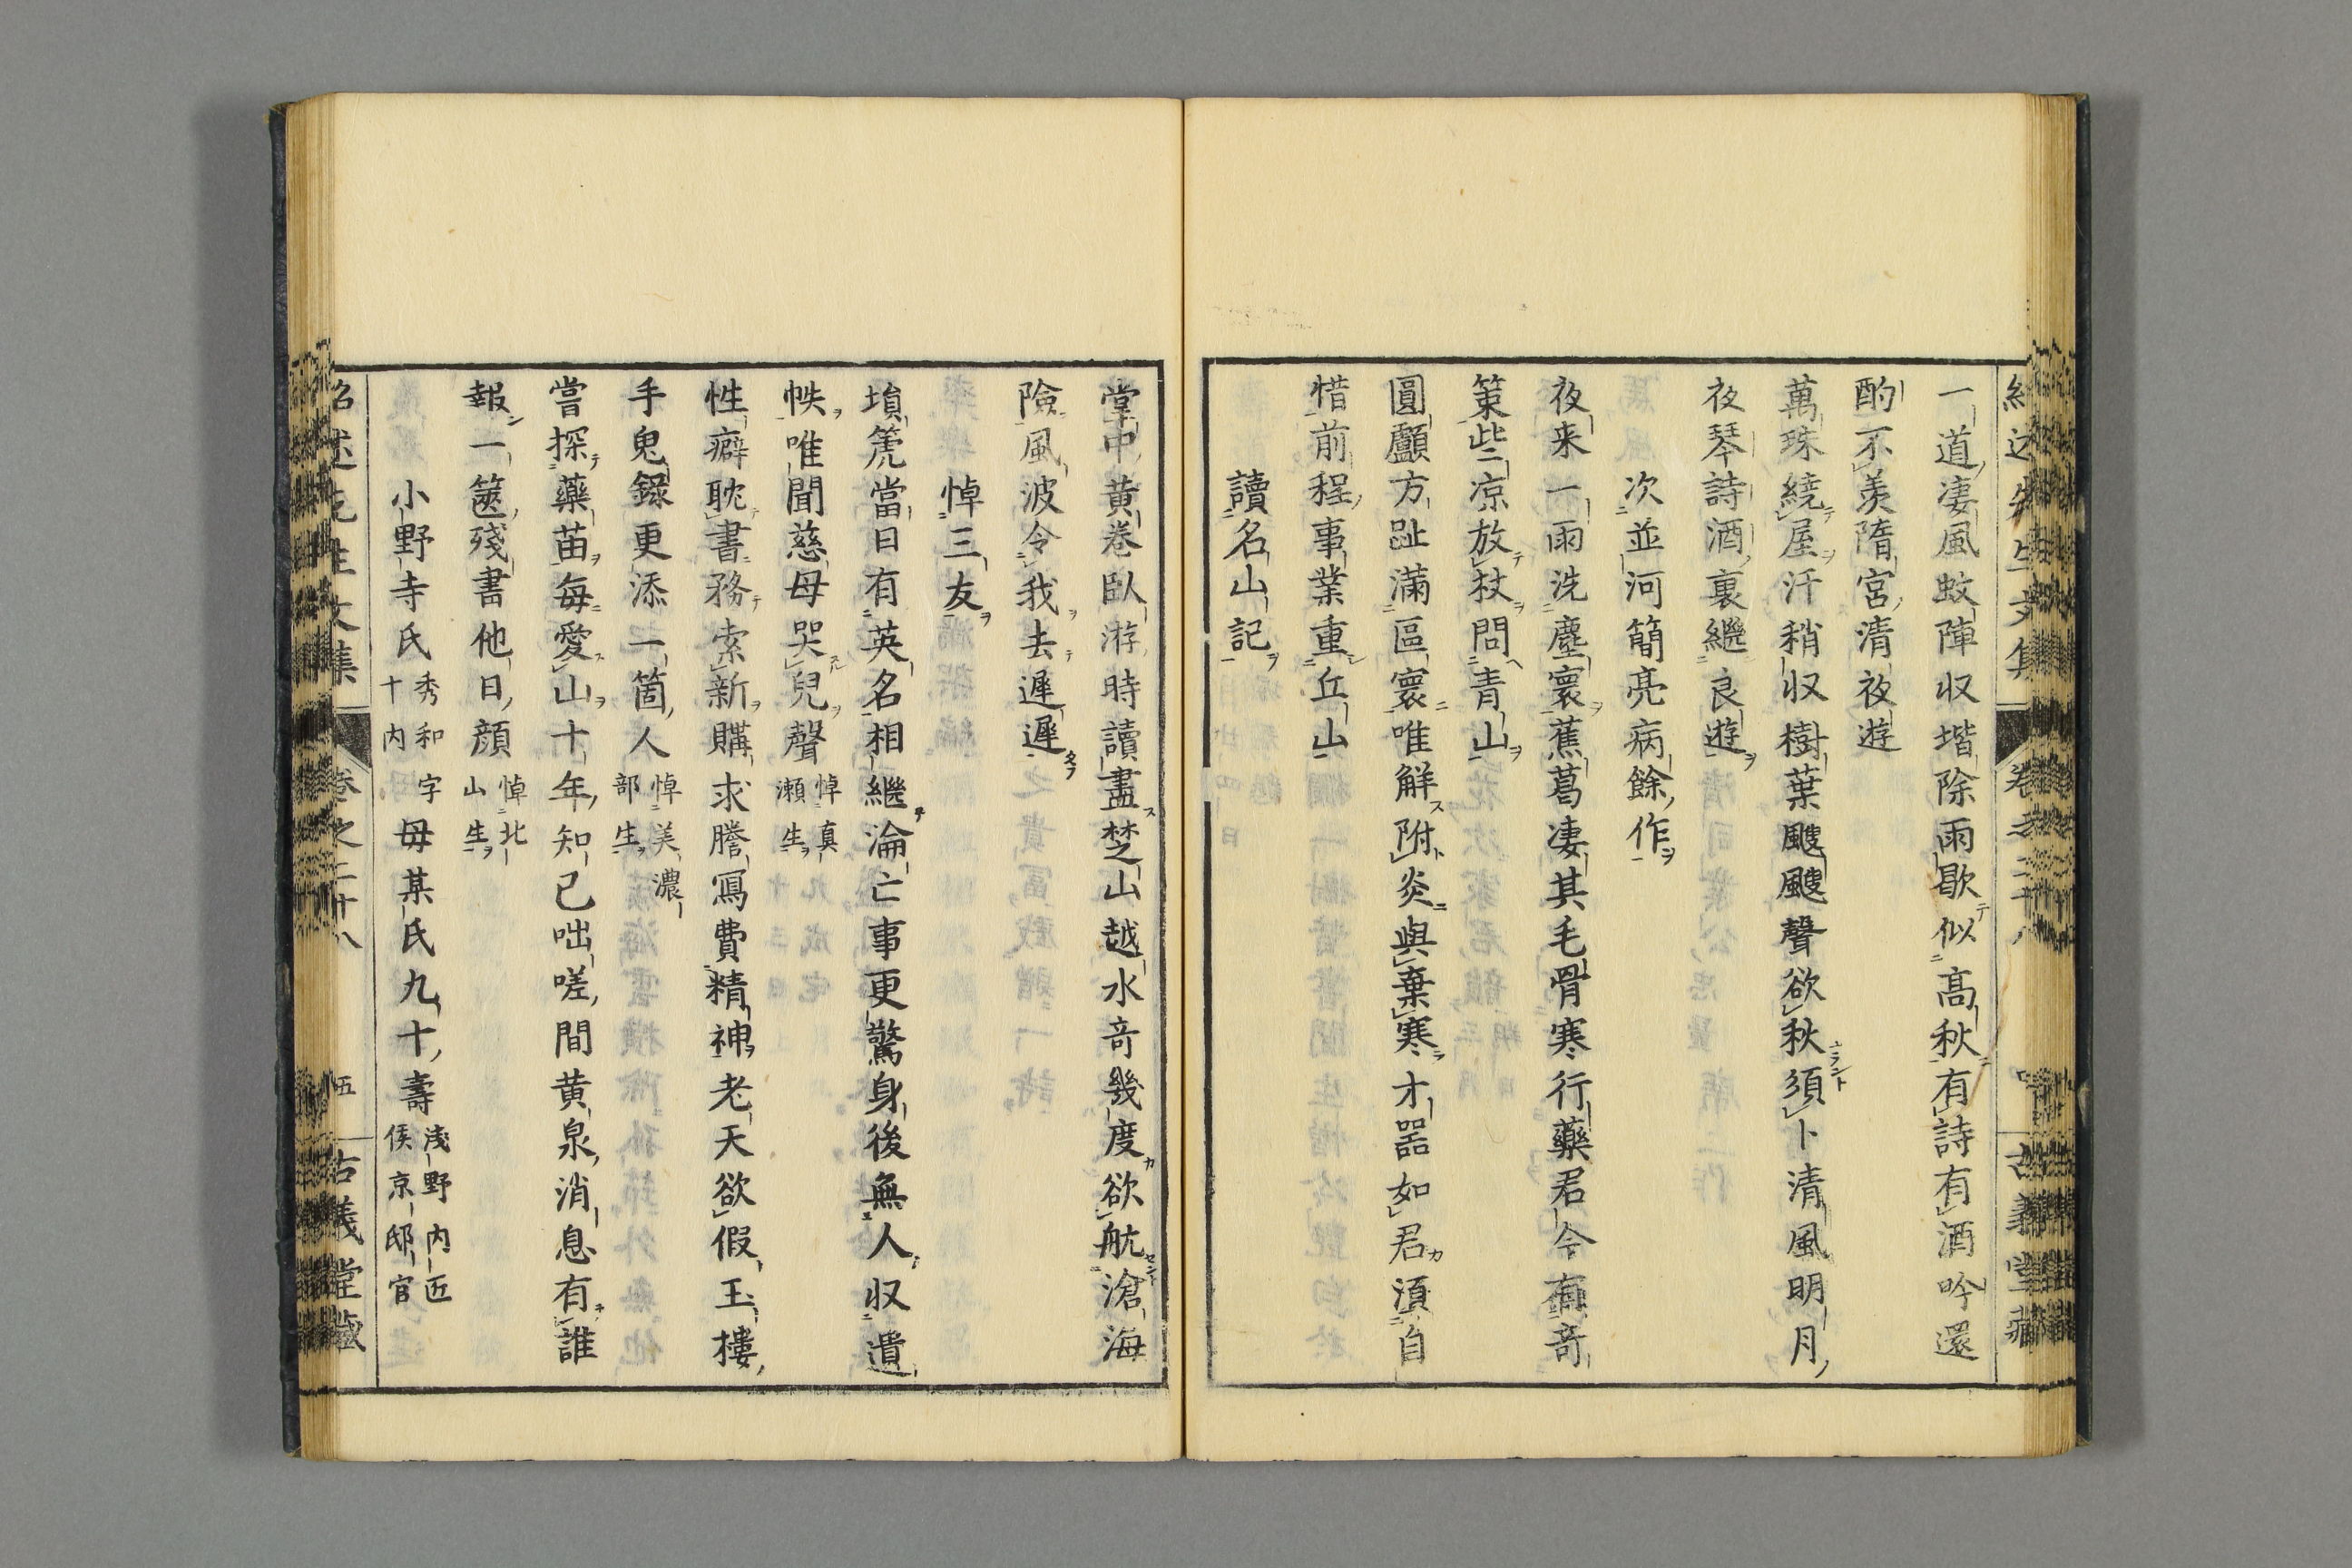 一道凄風蚊陣収堦除雨歇似高秋有詩有酒吟還
酌不羨隋宮清夜遊
萬珠繞屋汗稍収樹葉颼颼聲欲秋須卜清風明月
夜琴詩酒裏繼良遊
次並河簡亮病餘作
夜来一雨洗塵寰蕉葛凄其毛骨寒行藥君今有竒
策些些凉放杖問青山
圓顱方趾滿區寰唯解附炎與棄寒才器如君湏自
惜前程事業重丘山
讀名山記
堂中黄卷臥游時讀盡楚山越水竒幾度欲航滄海
險風波令我去遲遲
悼三友
塤箎當日有英名相繼淪亡事更驚身後無人収遺
帙唯聞慈母哭兒聲 悼真瀬生
性癖耽書務索新購求謄寫費精神老天欲假玉樓
手鬼錄更添一箇人 悼美濃部生
嘗探藥苗每愛山十年知己咄嗟間黄泉消息有誰
報一篋殘書他日顔 悼北山生
小野寺氏 秀和字十内 母某氏九十壽 淺野内匠侯京邸官
紹述先生文集 卷之二十八 五 古義堂藏